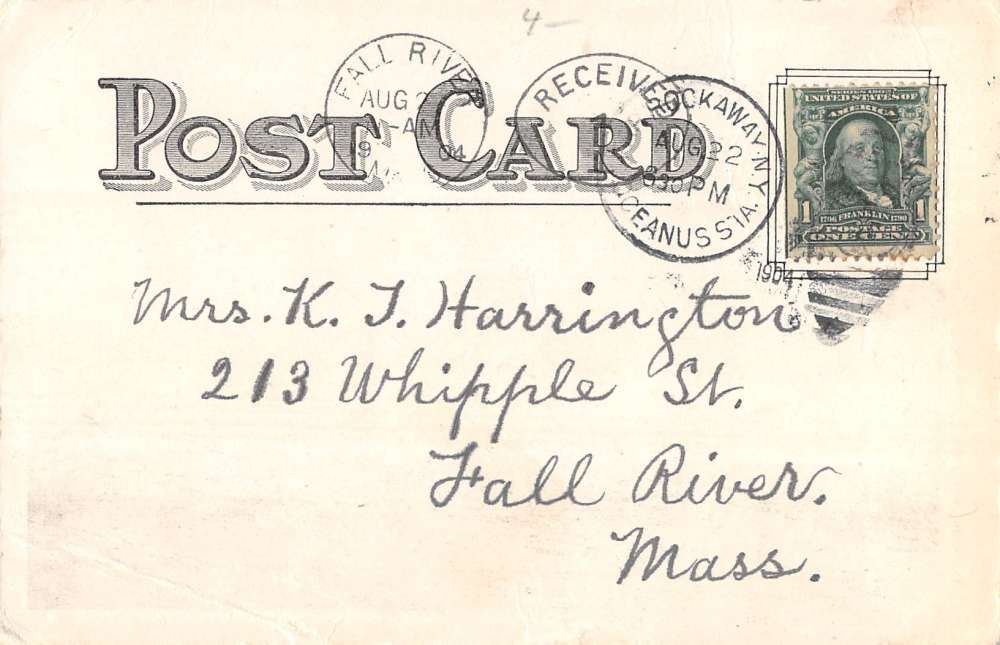 4-
POST CARD
FALL RIVER
AUG 2
-AM
9 04
RECEIVED
ROCKAWAY N.Y.
AUG 22
630 PM
OCEANUS STA.
1904
SERIES 1902
UNITED STATES OF
AMERICA
1 1
1706 FRANKLIN 1790
POSTAGE
ONE CENT
Mrs. K. T. Harrington
213 Whipple St.
Fall River.
Mass.